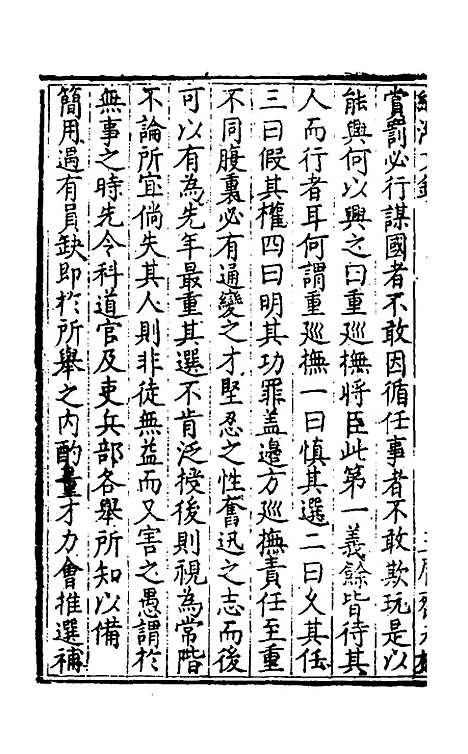 賞罰必行謀國者不敢因循任事者不敢欺玩是以
能興何以興之曰重廵撫將臣此第一義餘皆待其
人而行者耳何謂重廵撫一曰慎其選二曰乆其任
三曰假其權四曰明其功罪盖邉方廵撫責任至重
不同腹裏必有通變之才堅忍之性奮迅之志而後
可以有為先年最重其選不肯泛授後則視為常階
不論所宜倘失其人則非徒無益而又害之愚謂於
無事之時先令科道官及吏兵部各舉所知以備
簡用遇有員缺即於所舉之内酌量才力會推選補